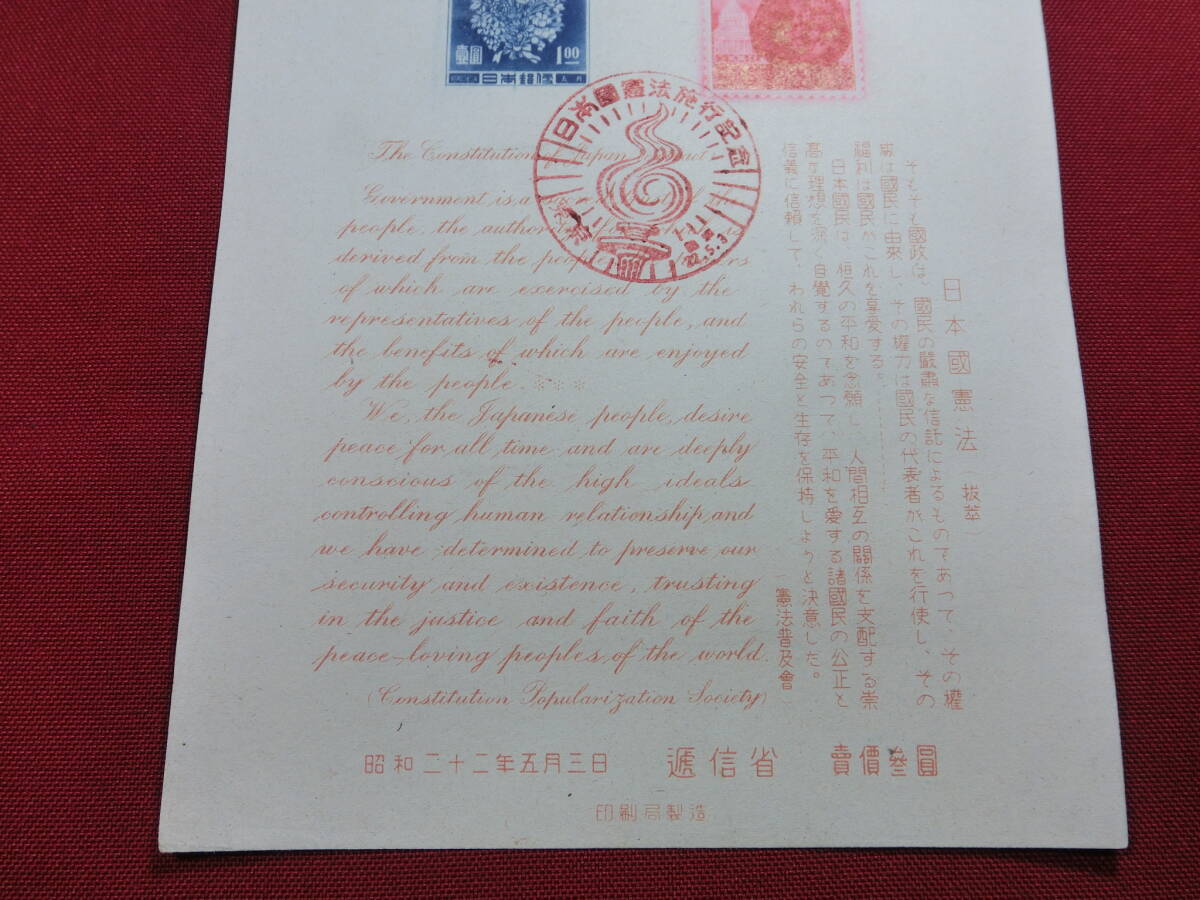 壹圓
1.00
日本郵便
日本國憲法施行記念
22.5.3
The Constitution of Japan
Government is a
people, the authority for
derived from the people
of which are exercised by the
representatives of the people, and
the benefits of which are enjoyed
by the people.
We, the Japanese people, desire
peace for all time and are deeply
conscious of the high ideals
controlling human relationship, and
we have determined to preserve our
security and existence, trusting
in the justice and faith of the
peace-loving peoples, of the world.
(Constitution Popularization Society)
日本國憲法(拔萃)
そもそも國政は、國民の嚴肅な信託によるものであつて、その權
威は國民に由來し、その權力は國民の代表者がこれを行使し、その
福利は國民がこれを享受する。
日本國民は、恒久の平和を念願し、人間相互の關係を支配する崇
高な理想を深く自覺するのであつて、平和を愛する諸國民の公正と
信義に信賴して、われらの安全と生存を保持しようと決意した。
(憲法普及會)
昭和二十二年五月三日 遞信省 賣價參圓
印刷局製造